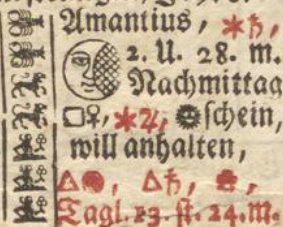 Amantius, ⚹♄,
2. U. 28. m.
Nachmittag
□♀, ⚹♃, ☼schein,
will anhalten,
△, △♄,
Tagl. 13. st. 24. M.